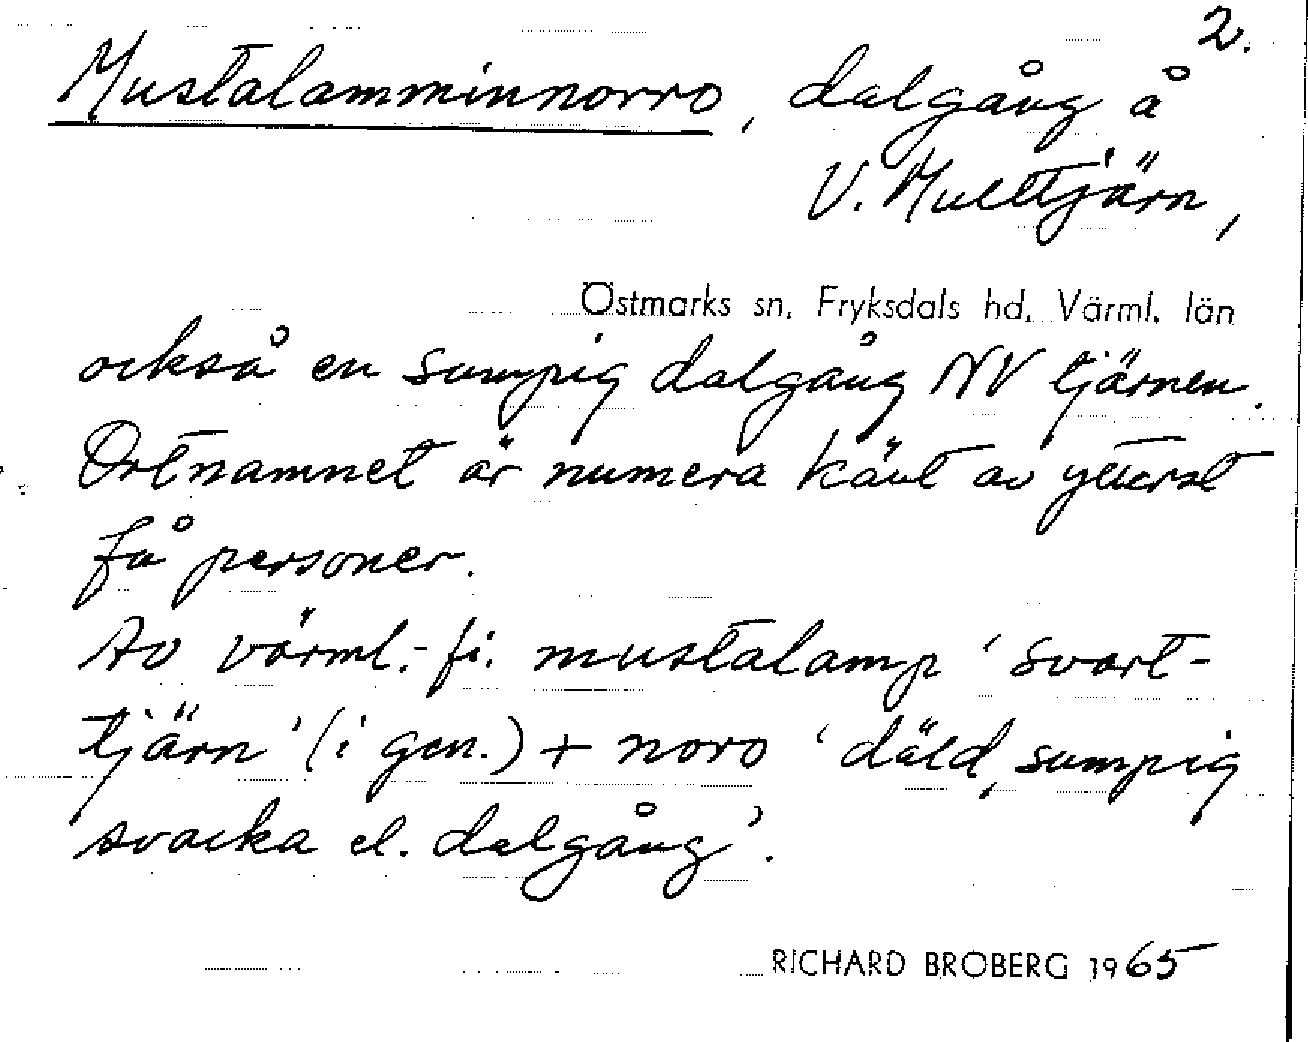 2.
Mustalamminnorro, dalgång å
V. Mulltjärn,
Östmarks sn. Fryksdals hd. Värml. län
också en sumpig dalgång NV tjärnen.
Ortnamnet är numera känt av ytterst
få personer.
Av värml.-fi. mustalamp 'svart-
tjärn' (i gen.) + noro 'däld, sumpig
svacka el. dalgång'.
RICHARD BROBERG 1965